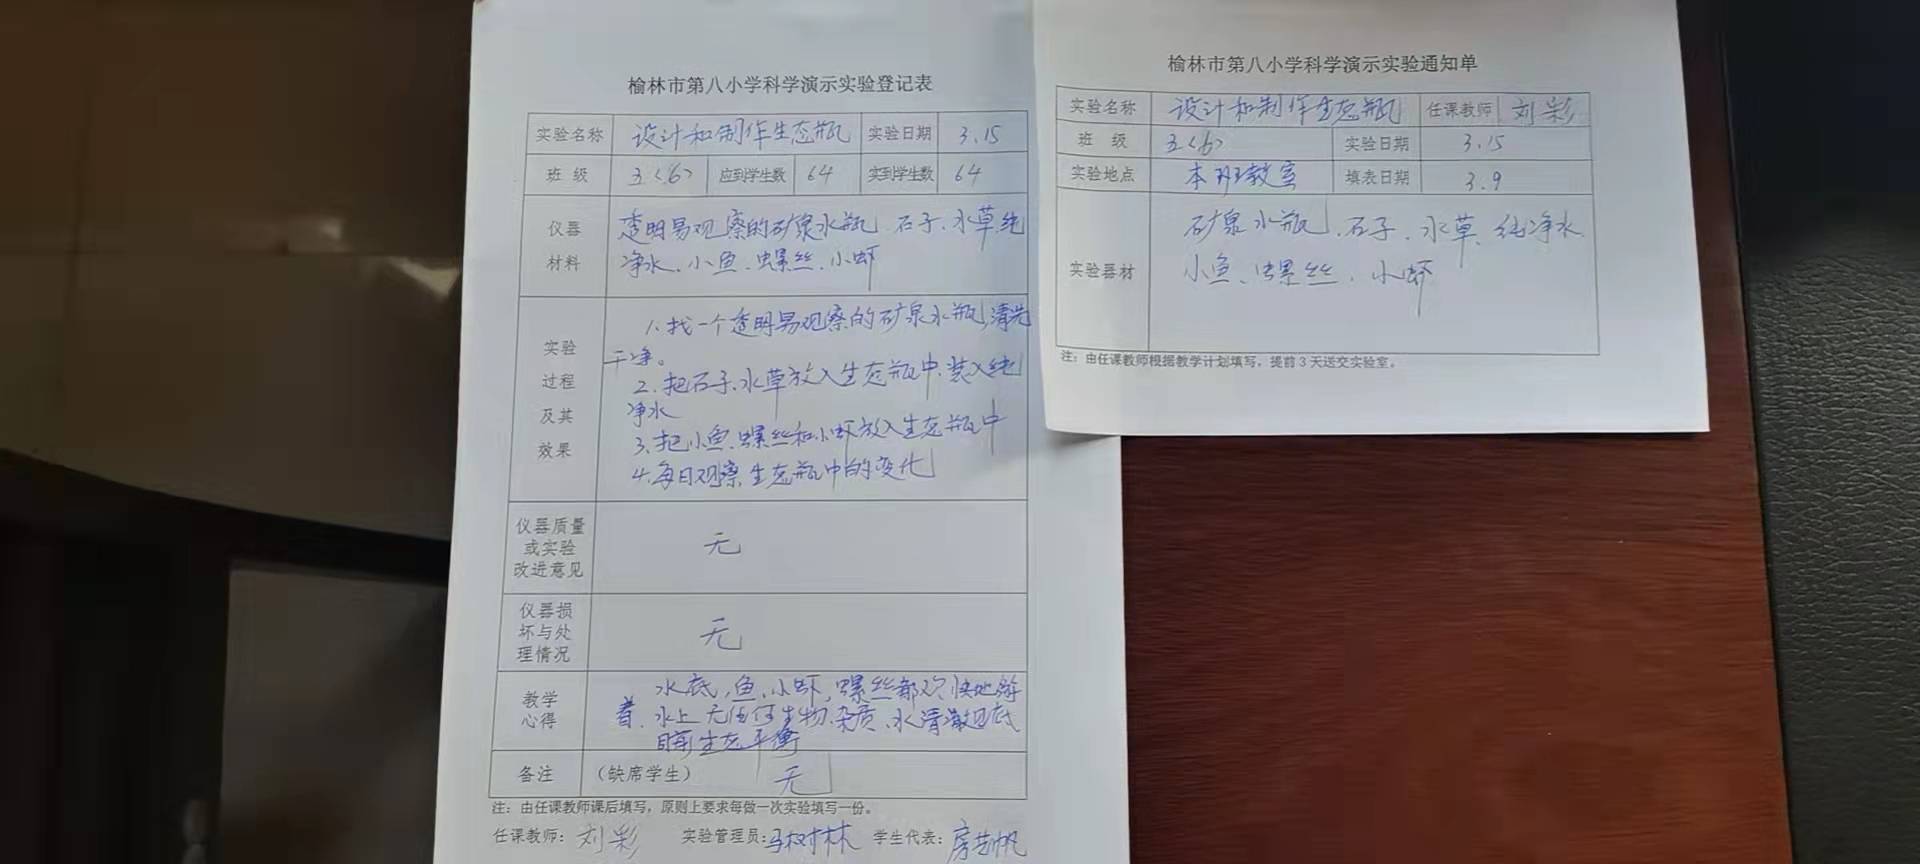 榆林市第八小学科学演示实验登记表
实验名称 设计和制作生态瓶 实验日期 3.15
班 级 五<6> 应到学生数 64 实到学生数 64
仪器
材料
透明易观察的矿泉水瓶、石子、水草、纯
净水、小鱼、螺丝、小虾
实验
过程
及其
效果
1、找一个透明易观察的矿泉水瓶,清洗
干净。
2、把石子、水草放入生态瓶中,装入纯
净水
3、把小鱼、螺丝和小虾放入生态瓶中
4、每日观察生态瓶中的变化
仪器质量
或实验
改进意见
无
仪器损
坏与处
理情况
无
教学
心得
水底,鱼、小虾,螺丝都欢快地游
着,水上无任何生物、杂质、水清澈见底
目前生态平衡
备注 (缺席学生) 无
注:由任课教师课后填写,原则上要求每做一次实验填写一份。
任课教师:刘彩 实验管理员:马树林 学生代表:
榆林市第八小学科学演示实验通知单
实验名称 设计和制作生态瓶 任课教师 刘彩
班 级 五<6> 实验日期 3.15
实验地点 本班教室 填表日期 3.9
实验器材
矿泉水瓶、石子、水草、纯净水
小鱼、螺丝、小虾
注:由任课教师根据教学计划填写,提前3天送交实验室。